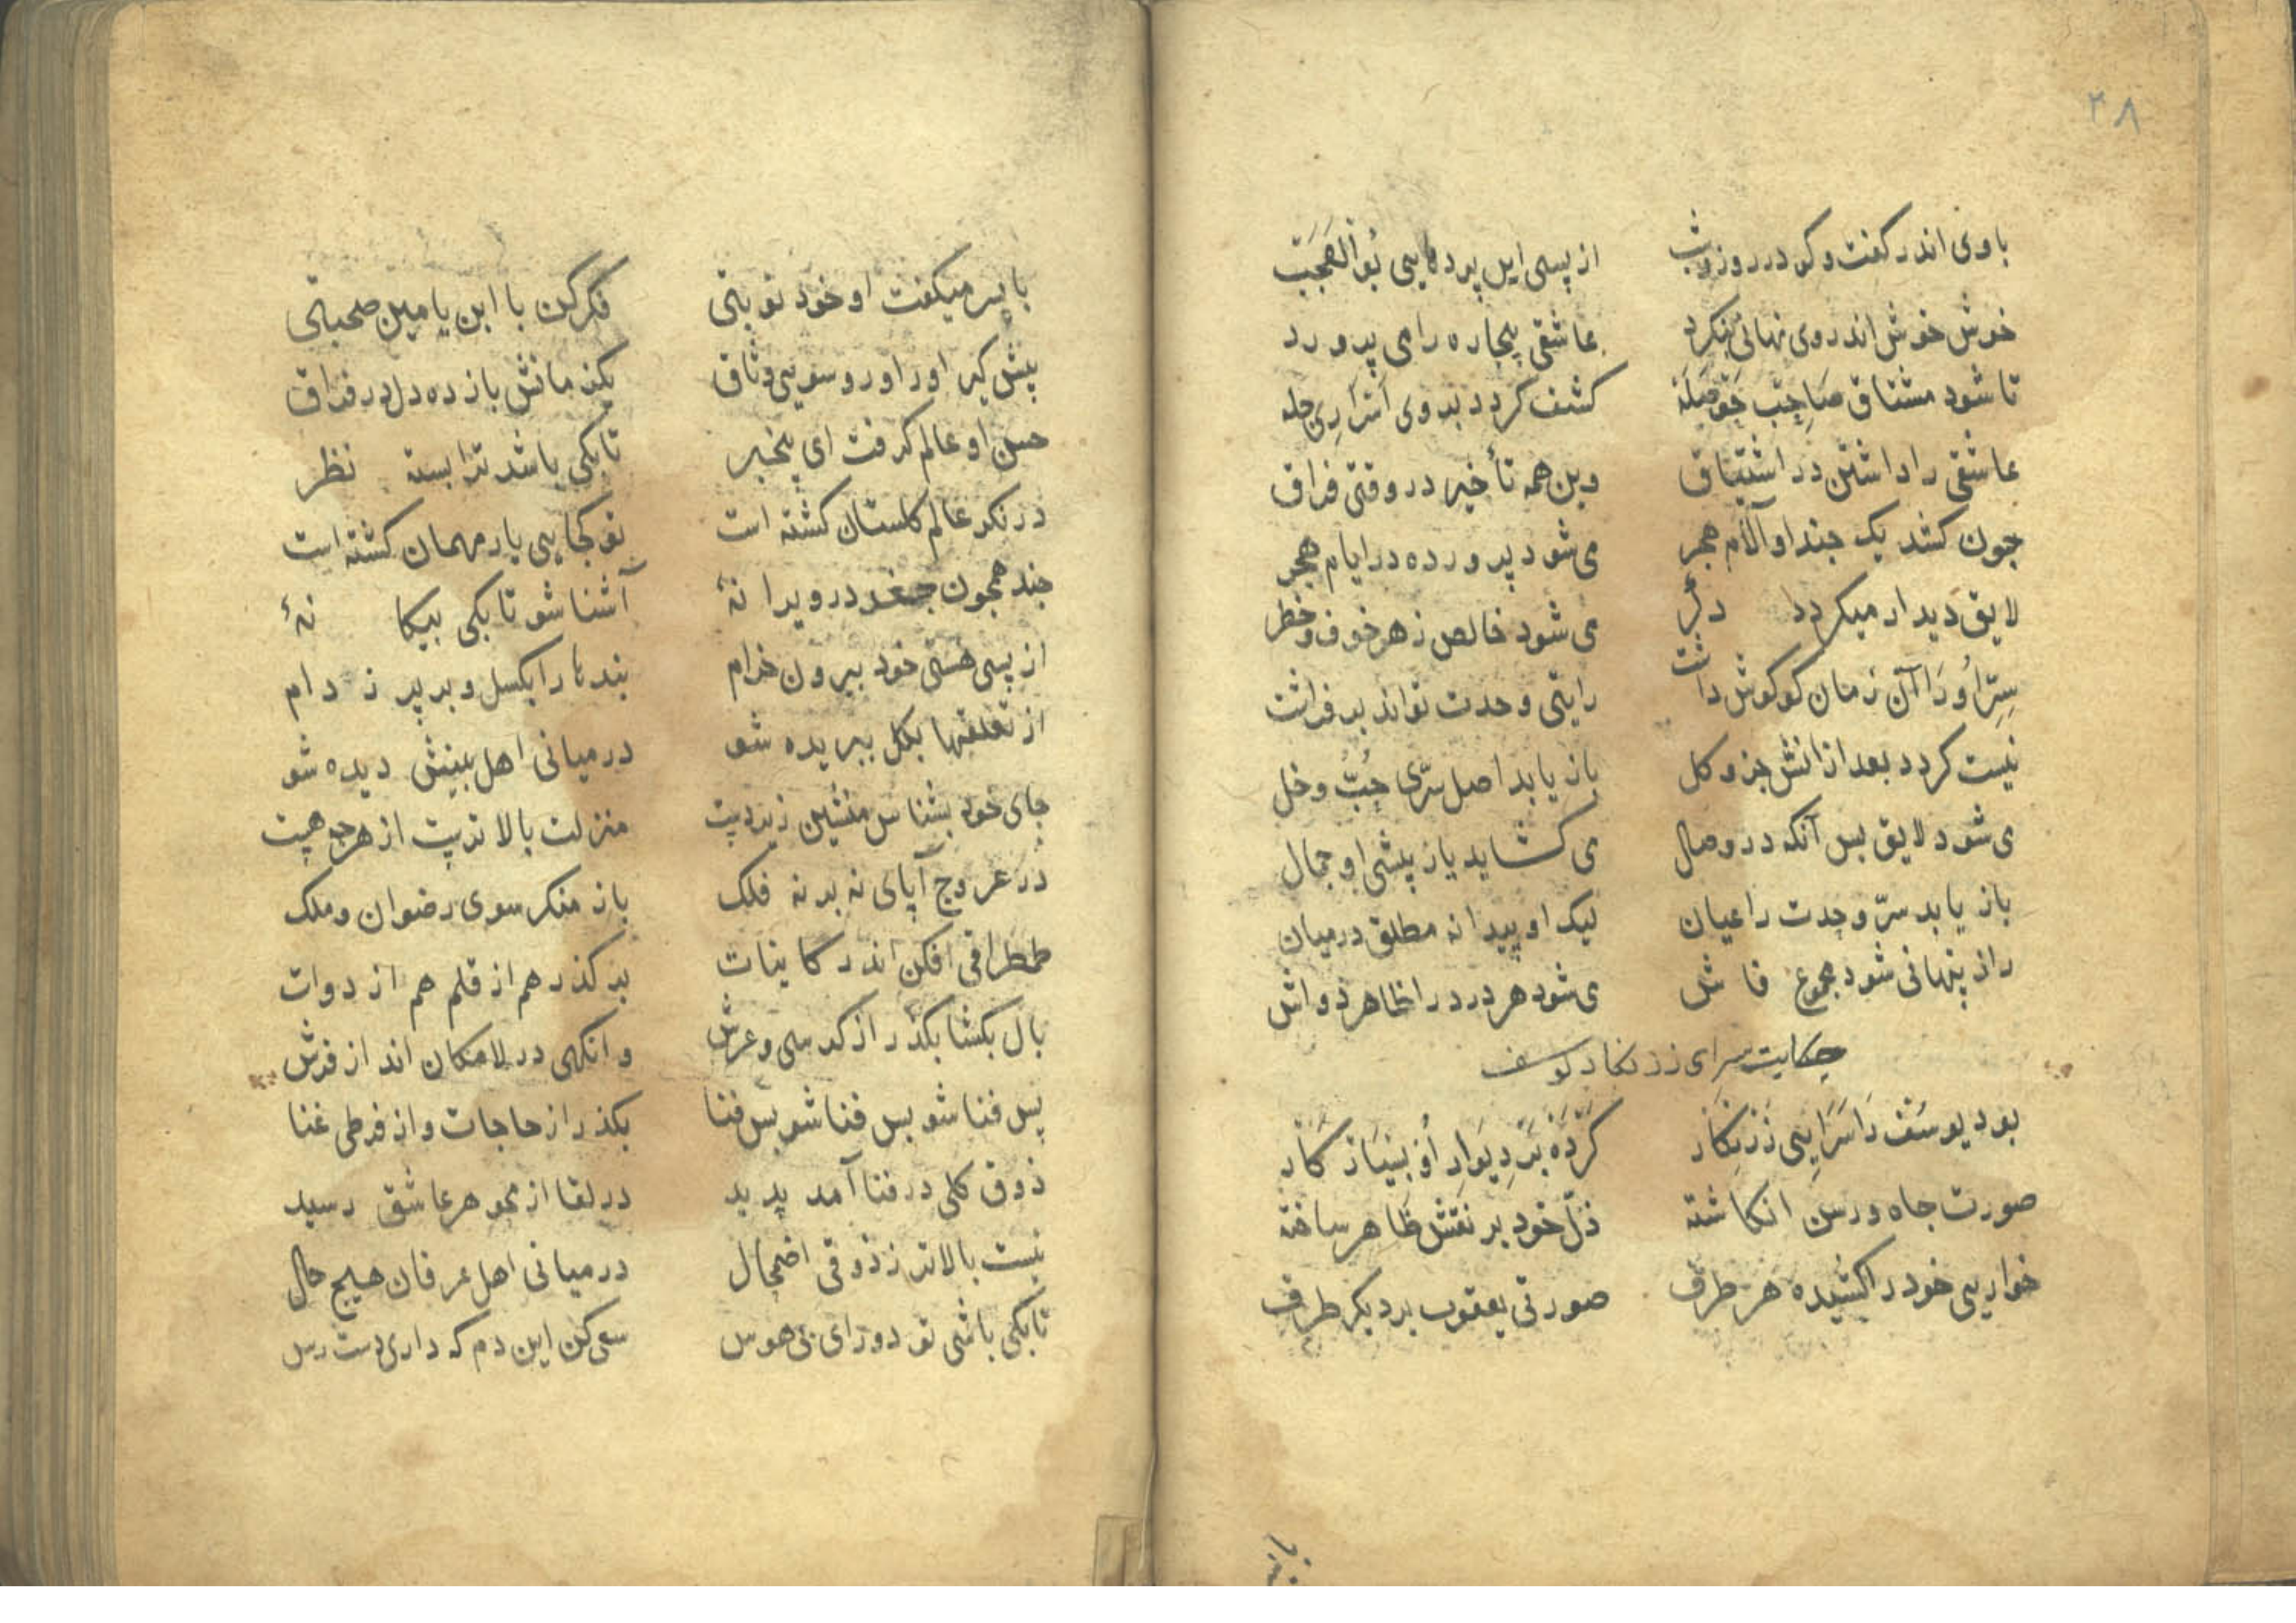 ۳۸
باوی اندر کفت وکو در روز وشب از پسی این پرده‌ایی بُو اَلعَجَبْ
خوش خوش اندر وی نهانی بنکرد عاشقی بیجاره را می پرورد
تا شود مشتاق صَاحِبْ حَوْصَلَهْ کشف کردد بدوی اَسْرَارِی جله
عاشقی را داشتن در اشتیاق وین همه تأخیر در وقتی فراق
جون کشد یک جند او آلام هجر می شود پرورده در ایام هجر
لایق دیدار میکردد دکر می شود خالص ز هر خوف وخطر
سِرِّ اُو رَا آن زمان کو کوش داشت رایتی وحدت تواند بر فراشت
نیست کردد بعد از انش جز و کل باز یابد اصل سرّی جُبّ و خل
می شود لایق بس آنکه در وصال می کشاید یار پیشی او جمال
باز یابد سرّ وحدت را عیان لیک او پیدا نه مطلق درمیان
راز پنهانی شود مجموع فاش می شود هر درد را ظاهر دواش
حکایت سرای زرنکار یوسف
بود یوسَفْ رَا سَرَایِی زَرْنِکَارْ کَرْدَهْ بَرْ دِیوَارِ اُوْ بِنْیَادْ کَارْ
صورت جاه ورسن انکاشته ذلّ خود بر نقش ظاهر ساخته
خواریی خود را کشیده هر طرف صورتی یعقوب بر دیکر طرف
با پسر میکفت او خود نوبتی فکر کن با ابن یامین صحبتی
پیش کیر اور اور و سویی وثاق یکذمانش باز ده دل در فراق
حسن او عالم کرفت ای بیخبر تا بکی باشد ترا بسته نظر
در نکر عالم کلستان کشته است تو کجایی یار مهمان کشته است
جند همجون جغد در ویرا نهٔ آشنا شو تا بکی بیکا نهٔ
از پسی هستی خود بیرون خرام بندها را بکسل و بر پر ز دام
از تعلقها بکل ببریده شو درمیانی اهل بینش دیده شو
جای خود بشناس منشین زیر دست منزلت بالا ترست از هرجه هست
در عروج آپای نه بر نه فلک باز منکر سوی رضوان وملک
طمطراقی افکن اندر کاینات بر کذر هم از قلم هم از دوات
بال بکشا بکذر از کرسی وعرش وانکهی در لامکان انداز فرش
پس فنا شو بس فنا شو بس فنا بکذر از حاجات واز فرطی غنا
ذوق کلی در فنا آمد پدید در لقا از محو هر عاشق رسید
نیست بالاتر ز ذوقی اضمحلال درمیانی اهل عرفان هیج حال
تا بکی باشی تو دور ای بی هوس سعی کن این دم که داری دست رس